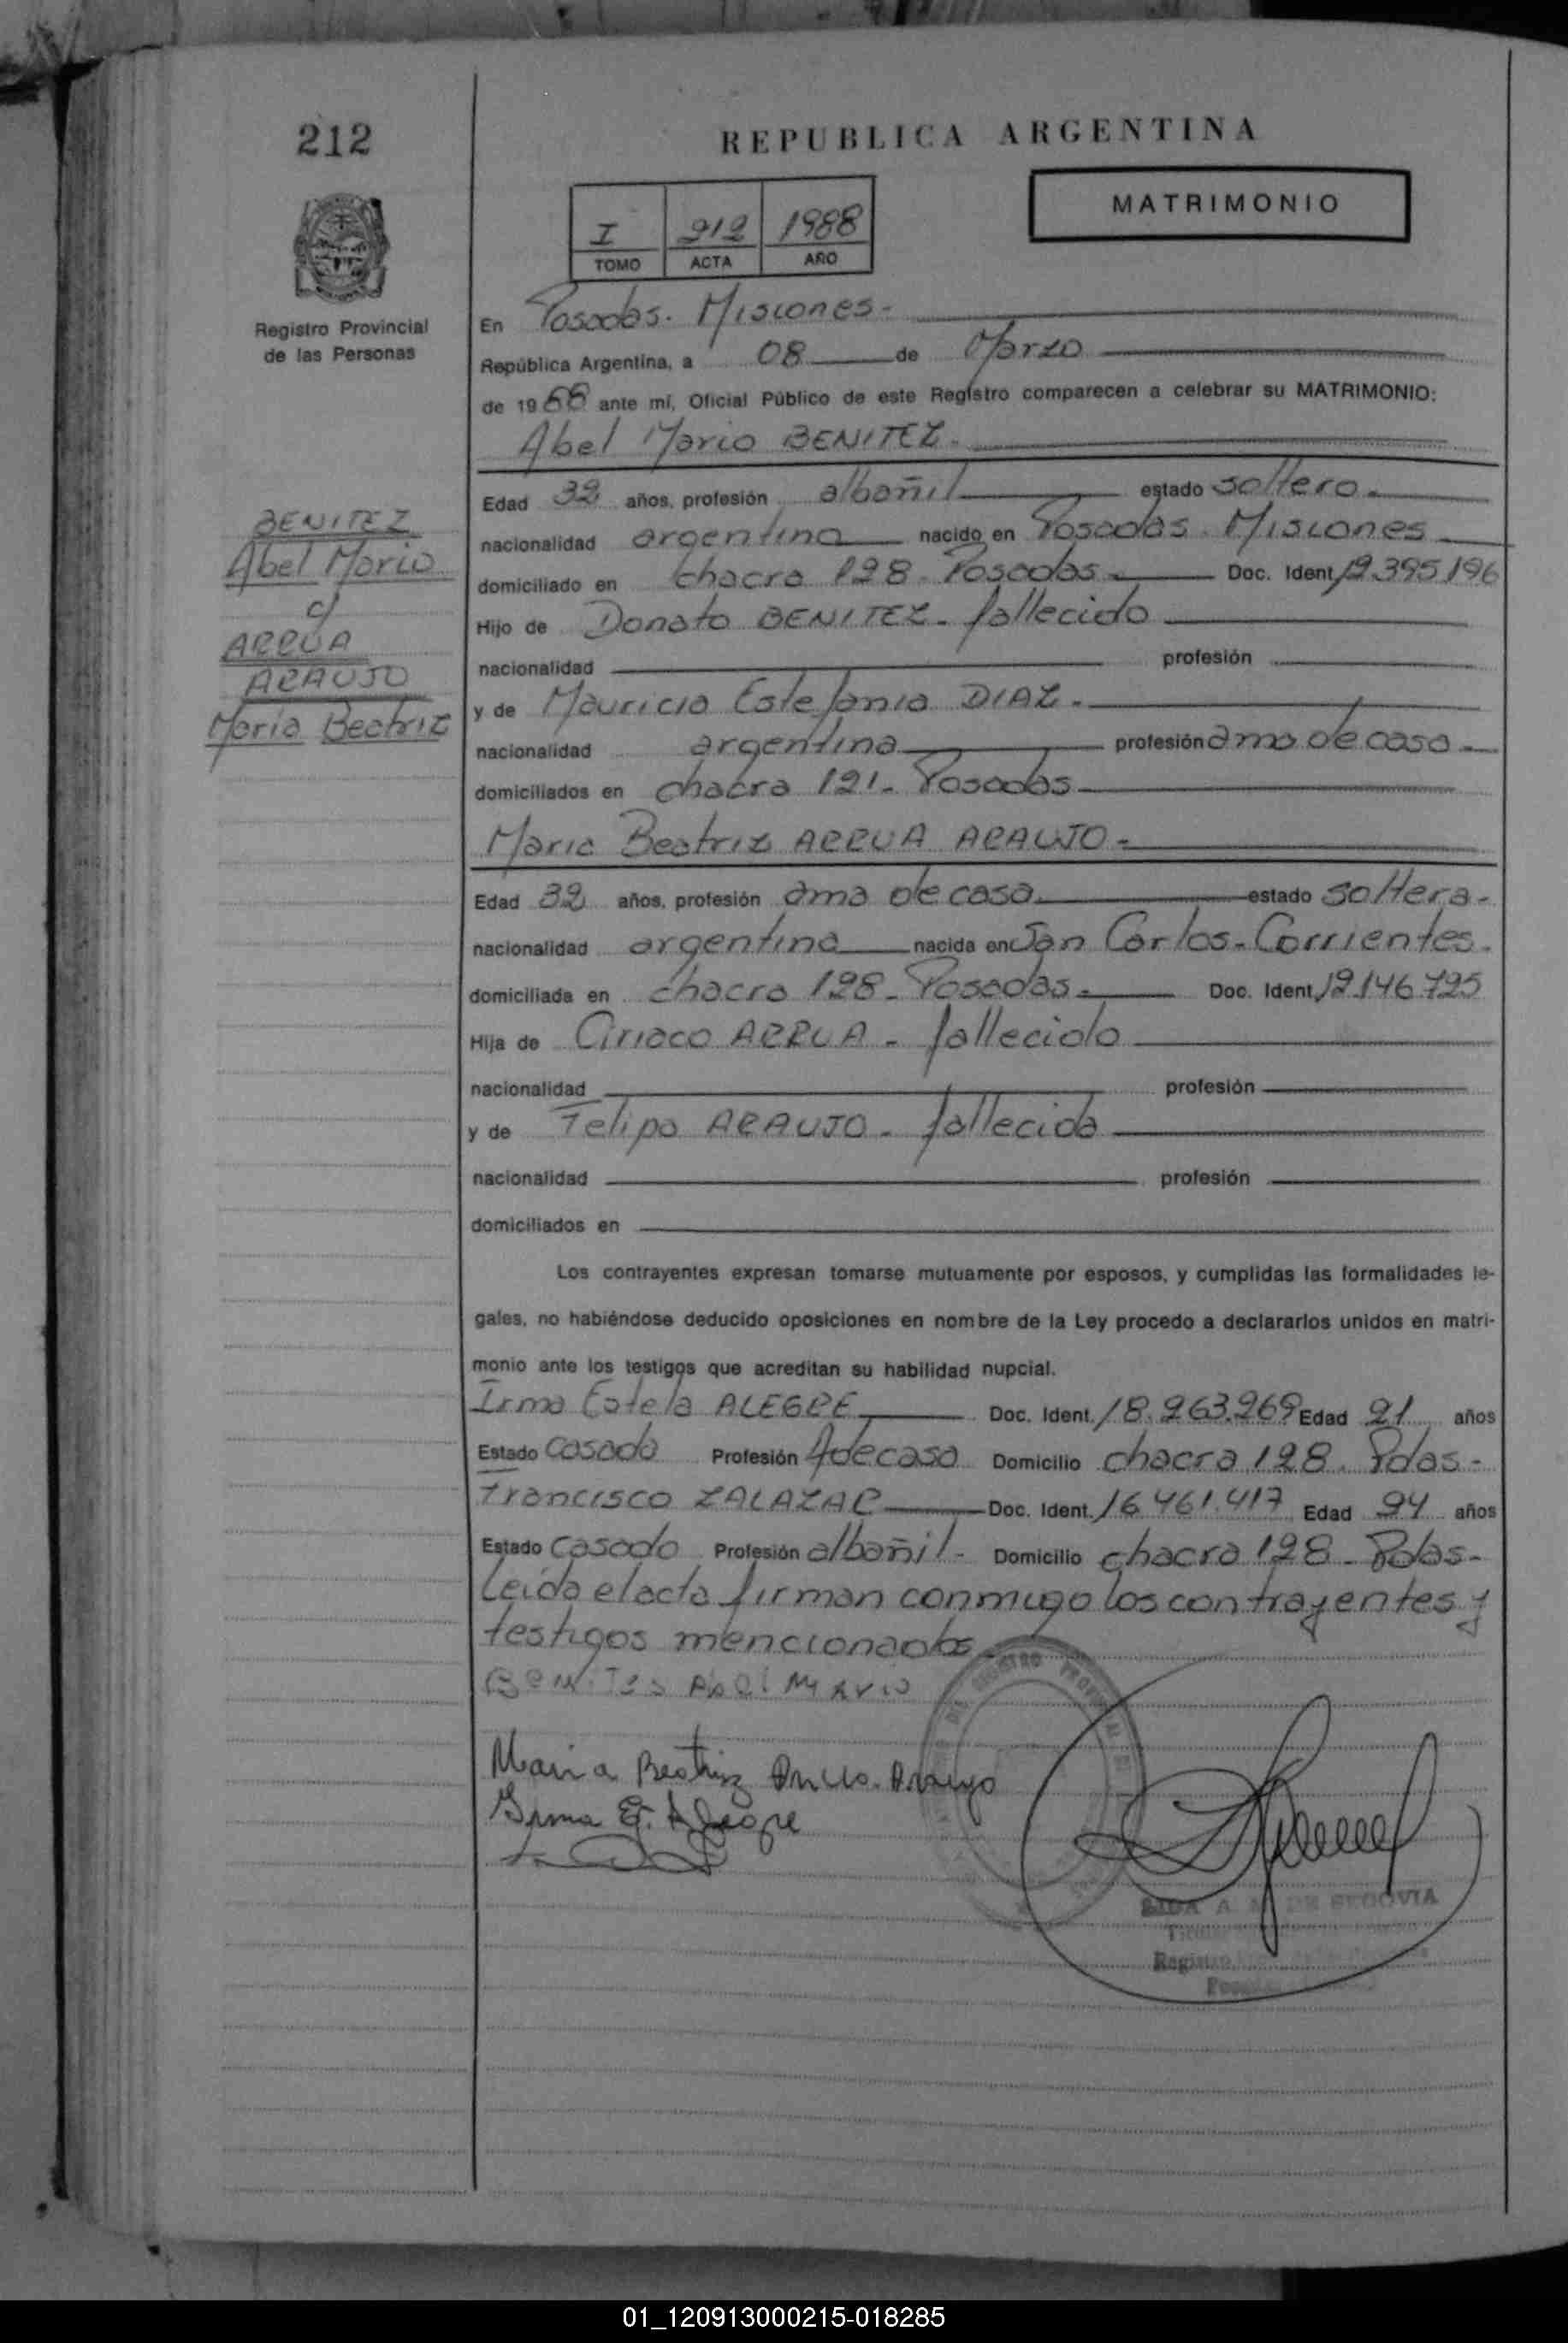 212
REPUBLICA ARGENTINA
MATRIMONIO
I 212 1988
TOMO ACTA AÑO
Registro Provincial
de las Personas
En Posadas. Misiones-
República Argentina, a 08 de Marzo
de 1988 ante mí, Oficial Público de este Registro comparecen a celebrar su MATRIMONIO:
Abel Mario BENITEZ-
Edad 32 años, profesión albañil estado soltero-
nacionalidad argentina nacido en Posadas. Misiones
domiciliado en chacra 128. Posadas- Doc. Ident. 12.395.196
Hijo de Donato BENITEZ- fallecido
nacionalidad profesión
y de Mauricia Estefania DIAZ-
nacionalidad argentina profesión ama de casa-
domiciliados en chacra 121- Posadas
BENITEZ
Abel Mario
c/
ARRUA
ARAUJO
María Beatriz
Maria Beatriz ARRUA ARAUJO-
Edad 32 años, profesión ama de casa estado soltera-
nacionalidad argentina nacida en San Carlos-Corrientes-
domiciliada en chacra 128- Posadas- Doc. Ident. 12.146.725
Hija de Ciriaco ARRUA- fallecido
nacionalidad profesión
y de Felipa ARAUJO- fallecida
nacionalidad profesión
domiciliados en
Los contrayentes expresan tomarse mutuamente por esposos, y cumplidas las formalidades le-
gales, no habiéndose deducido oposiciones en nombre de la Ley procedo a declararlos unidos en matri-
monio ante los testigos que acreditan su habilidad nupcial.
Irma Estela ALEGRE Doc. Ident. 18.263.269 Edad 21 años
Estado casada Profesión Adecasa Domicilio chacra 128. Pdas-
Francisco ZALAZAR Doc. Ident. 16.461.417 Edad 24 años
Estado casado Profesión albañil- Domicilio chacra 128- Pdas-
Leída el acta firman conmigo los contrayentes y
testigos mencionados
Benites Abel Mario
Maria Beatriz Arrua Araujo
Irma E. Alegre
DE SEGOVIA
Registro
01_120913000215-018285